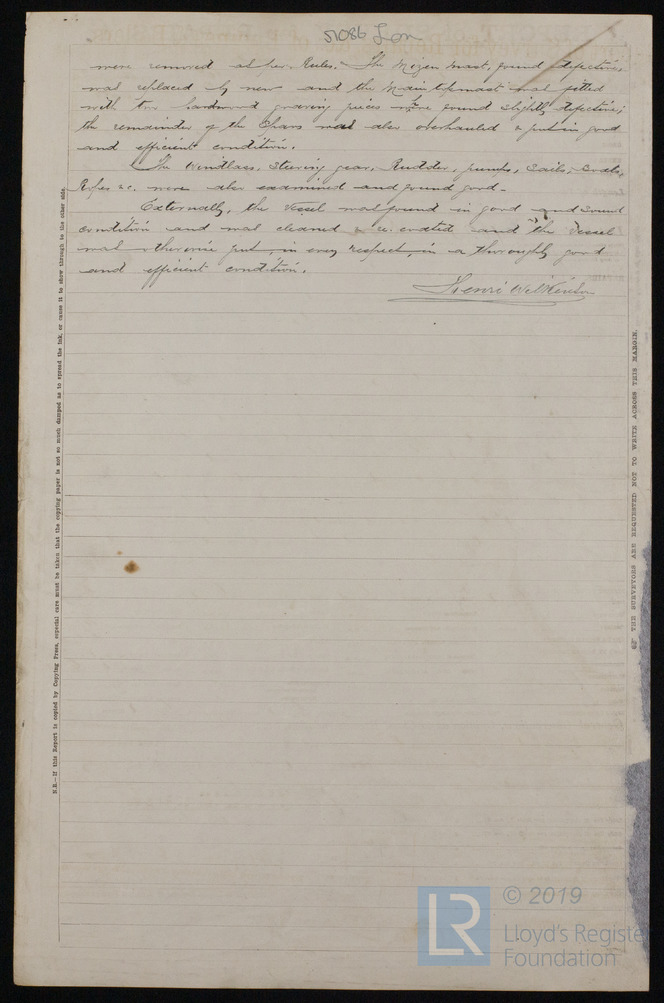 51086 Lon
were removed as per Rules. The Mizen mast, found defective,
was replaced by new and the Main topmast was fitted
with two hardwood graving pieces where found slightly defective;
the remainder of the Spars was also overhauled & put in good
and efficient condition.
The Windlass, Steering gear, Rudder, pumps, Sails, Boats,
Ropes &c. were also examined and found good.
Externally, the Vessel was found in good and Sound
condition and was cleaned & re.coated and the Vessel
was otherwise put, in every respect, in a thoroughly good
and efficient condition.
Henri Wilkinson
N.B.—If this Report is copied by Copying Press, especial care must be taken that the copying paper is not so much damped as to spread the Ink, or cause it to show through to the other side.
THE SURVEYORS ARE REQUESTED NOT TO WRITE ACROSS THIS MARGIN.
LR
© 2019
Lloyd's Registe
Foundation